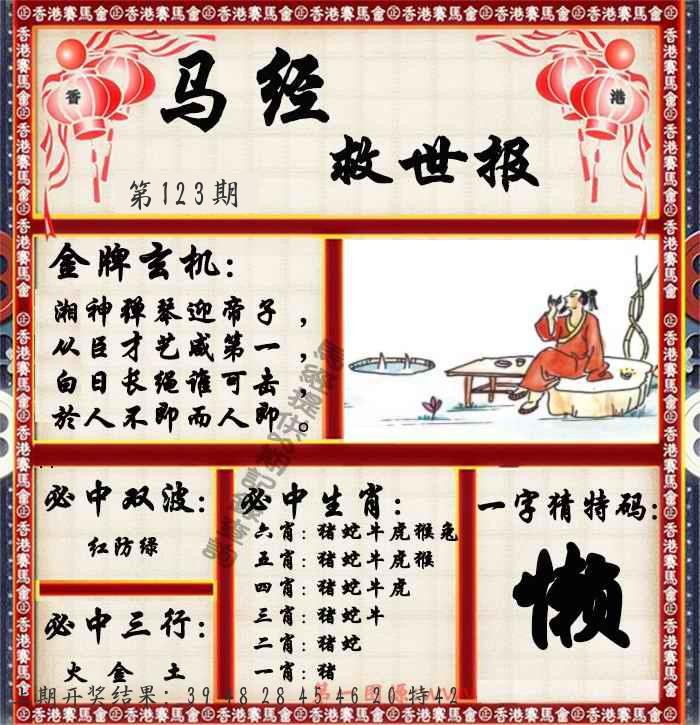 香港賽馬會
香 港
马经
救世报
第123期
金牌玄机：
湘神弹琴迎帝子，
从臣才艺咸第一，
白日长绳谁可击，
於人不即而人即。
必中双波：
红防绿
必中三行：
火 金 土
必中生肖：
六肖：猪蛇牛虎猴兔
五肖：猪蛇牛虎猴
四肖：猪蛇牛虎
三肖：猪蛇牛
二肖：猪蛇
一肖：猪
一字猜特码：
懒
期开奖结果：39 48 28 45 46 20 特42